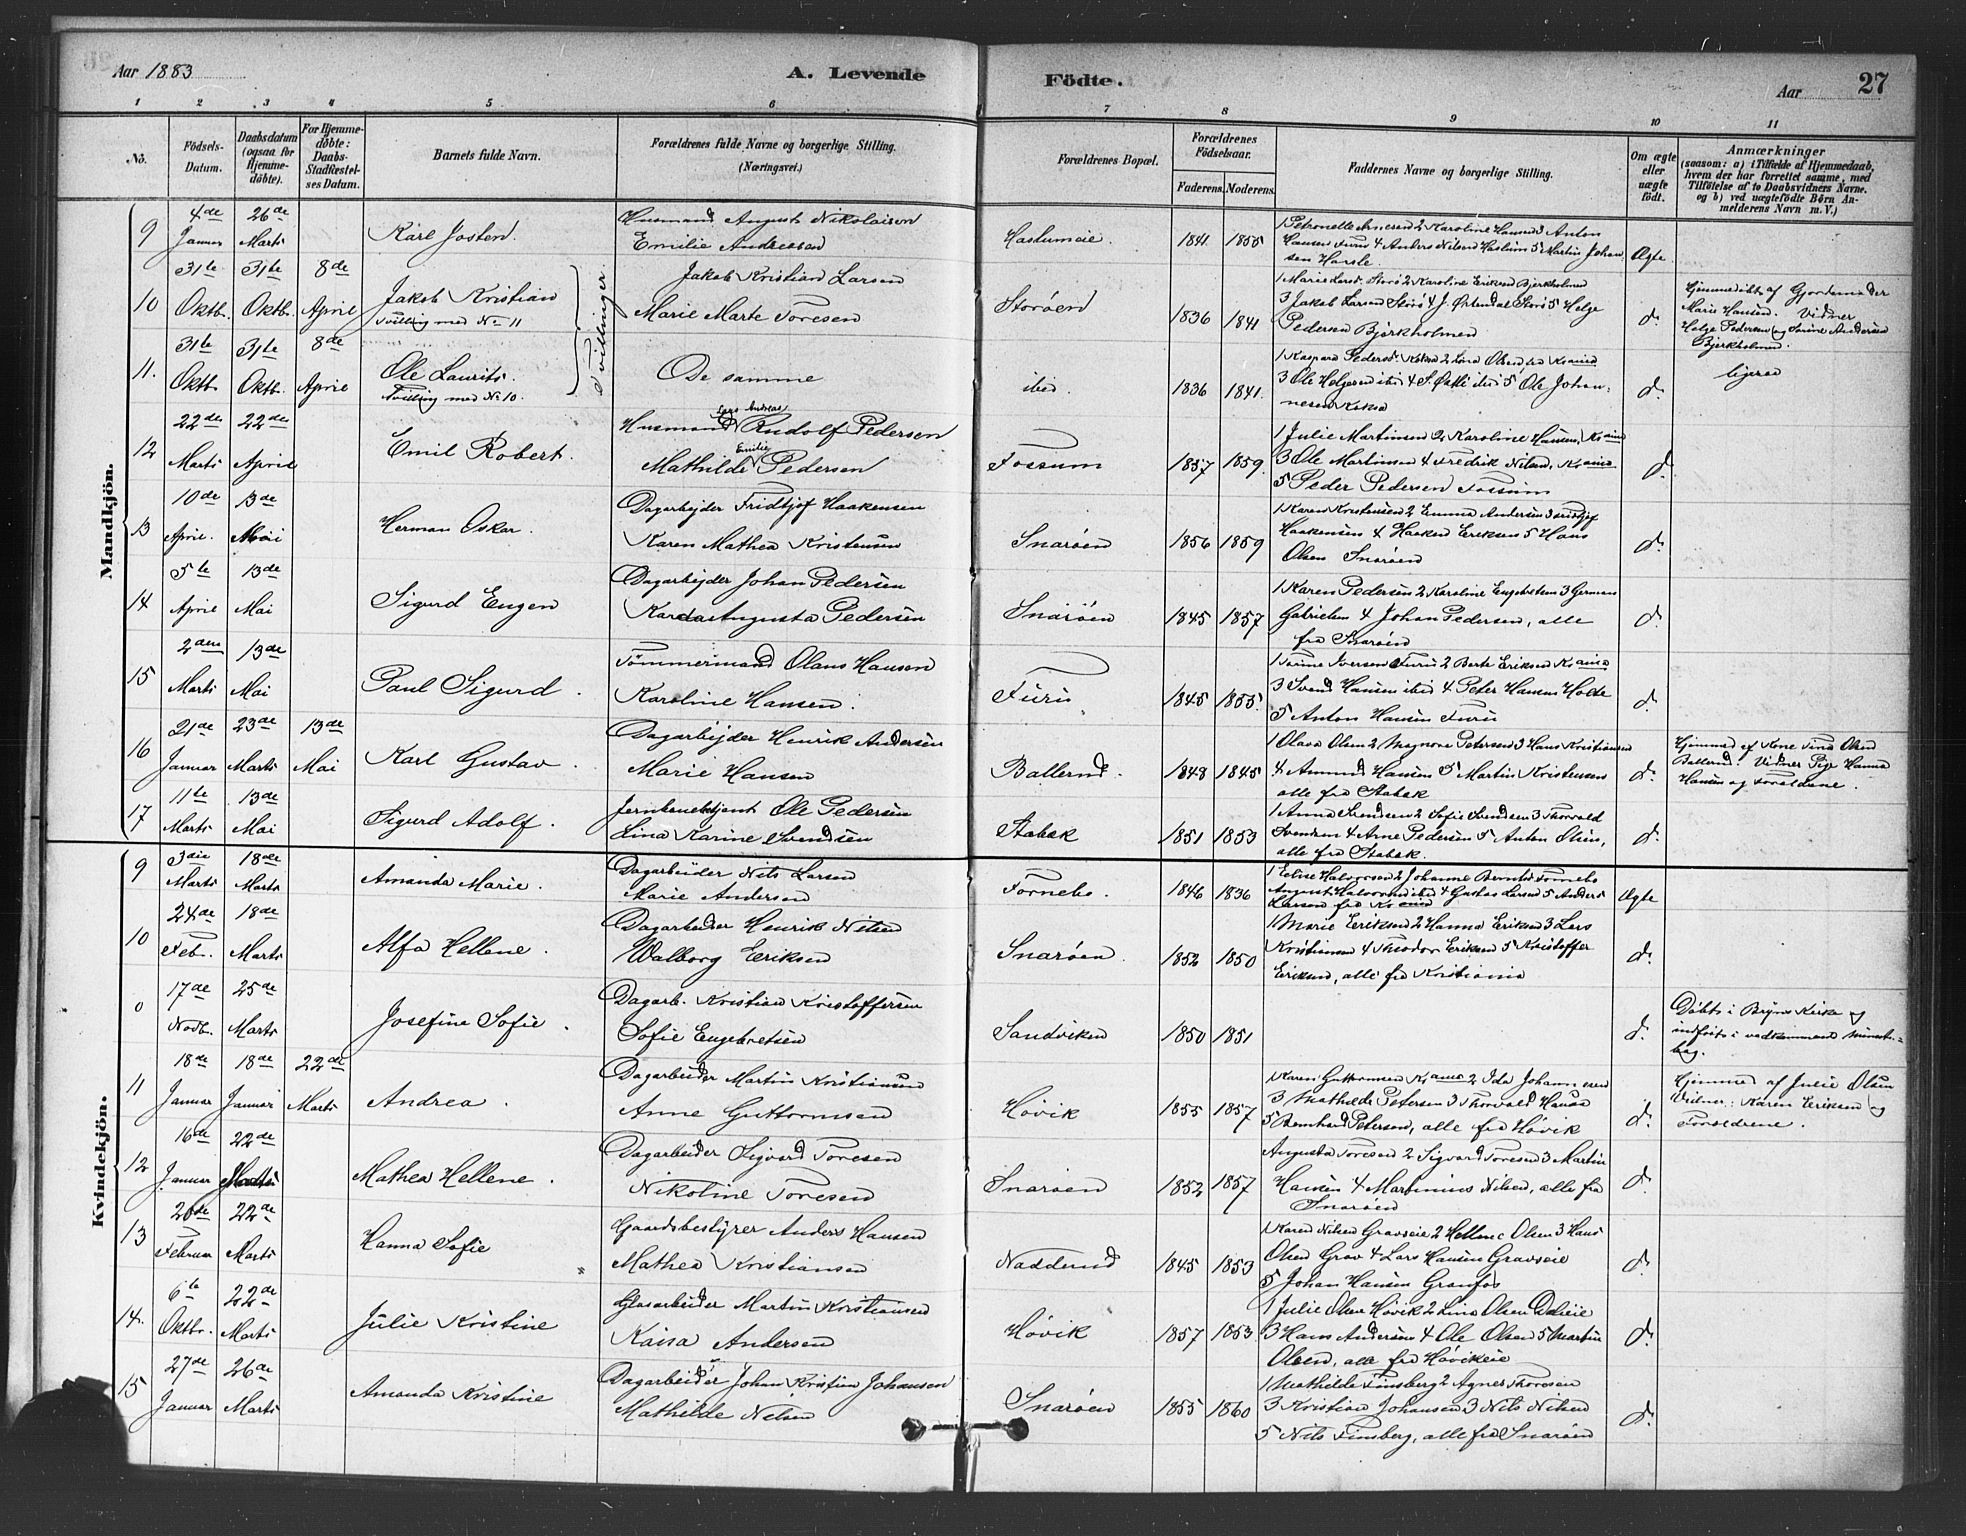 Aar 1883
A. Levende
Födte.
Aar
27
1 2 3 4 5 6 7 8 9 10 11
No.
Födsels-
Datum.
Daabsdatum
(ogsaa for
Hjemme-
döbte).
For Hjemme-
döbte:
Daabs-
Stadfæstel-
ses Datum.
Barnets fulde Navn.
Forældrenes fulde Navne og borgerlige Stilling.
(Næringsvei.)
Forældrenes Bopæl.
Forældrenes
Födselsaar.
Faderens. Moderens.
Faddernes Navne og borgerlige Stilling.
Om ægte
eller
uægte
födt.
Anmærkninger
(saasom: a) i Tilfælde af Hjemmedaab,
hvem der har forrettet samme, med
Tilföielse af to Daabsvidners Navne.
og b) ved uægtefödte Börn An-
melderens Navn m. V.)
Mandkjön.
9
4de Januar
26de Marts
Karl Josten.
Husmand August Nikolaisen
Emilie Andreasen
Haslumeie.
1841. 1855
1 Petronelle 2 Karoline Hansen 3 Anton
Hansen Furu 4 Anders Nilsen Haslum 5 Martin Johan
sen Hasle.
Ægte
10
31te Oktb.
31te Oktb.
8de April
Jakob Kristian
Tvilling med No 11
Tvillinger
Jakob Kristian Larsen
Marie Marte Toresen
Storöen
1836 1841
1 Marie Larsd. Storö 2 Karoline Eriksen Bjerkholmen
3 Jakob Larsen Storö 4 J. Storö 5 Helge
Pedersen Bjerkholmen
d.
Hjemmedöbt af Gjordemoder
Marie Hansen. Vidner
Helge Pedersen og Andersen
Bjerkholmen.
11.
31te Oktb.
31te Oktb.
8de April
Ole Laurits.
Tvilling med No 10.
De samme
ibid.
1836 1841.
1 Kaspara Pedersd. 2 Lina Olsen
3 Ole Helgesen ibid 4 ibid 5 Ole Johan-
nesen Koksa
d.
ligesaa
12
22de Marts
22de April
Emil Robert.
Lars Andreas
Husmand Rudolf Pedersen
Emilie
Mathilde Pedersen
Fossum
1857 1859.
1 Julie Martinsen 2 Karoline Hansen, Kr.ania
3 Ole Martinsen 4 Fredrik Nilsen, Kr.ania
5 Peder Pedersen Fossum
d.
13
10de April.
13de Mai
Herman Oskar.
Dagarbejder Fridtjof Haakensen
Karen Mathea Kristensen
Snaröen
1856 1859
1 Karen Kristensen 2 Emma Andersen 3 Fridtjof
Haakensen 4 Haaken Eriksen 5 Hans
Olsen Snaröen
d.
14
5te April
13de Mai
Sigurd Eugen
Dagarbejder Johan Pedersen
Karda Augusta Pedersen
Snaröen
1845 1857
1 Karen Pedersen 2 Karoline Engebretsen 3 Herman
Gabrielsen 4 Johan Pedersen, alle
fra Snaröen
d.
15
2den Marts
13de Mai
Paul Sigurd.
Tömmermand Olaus Hansen
Karoline Hansen.
Furu
1845 1855.
1 Torine Iversen Furu 2 Berte Eriksen Kr.ania
3 Svend Hansen ibid 4 Peter Hansen Holte
5 Anton Hansen Furu
d.
16
21de Januar
23de Marts
13de Mai
Karl Gustav.
Dagarbejder Henrik Andersen
Marie Hansen
Ballerud.
1848 1845
1 Olava Olsen 2 Magnone Petersen 3 Hans Kristiansen
4 Amund Hansen 5 Martin Kristensen
alle fra Stabæk
d.
Hjemmed. af Kone Tina Olsen
Ballerud. Vidner Pige Hanna
Hansen og Forældrene.
17
11te Marts
13de Mai
Sigurd Adolf.
Jernbanebetjent Ole Pedersen
Lina Karine Svendsen
Stabæk
1851 1853
1 Anna Svendsen 2 Sofie Svendsen 3 Thorvald
Svendsen 4 Arne Pedersen 5 Anton Olsen,
alle fra Stabæk.
d.
Kvindekjön.
9
3die Marts
18de Marts
Amanda Marie.
Dagarbeider Nils Larsen
Marie Andersen
Fornebo.
1846 1836
1 Eelise Halvorsen 2 Johanne Berntsd. Fornebo
August Halvorsen ibid 4 Gustav Larsen 5 Anders
Larsen fra Kr.ania
Ægte
10
24de Feb.
18de Marts
Alfa Hellene.
Dagarbeider Henrik Nilsen
Walborg Eriksen
Snaröen.
1852 1850
1 Marie Eriksen 2 Hanna Eriksen 3 Lars
Kristiansen 4 Theodor Eriksen 5 Kristoffer
Eriksen, alle fra Kristiania
d.
0
17de Novb.
25de Marts
Josefine Sofie.
Dagarb. Kristian Kristoffersen
Sofie Engebretsen
Sandviken
1850 1851
d.
Döbt i Bryns Kirke og
indfört i vedkommende minist.-
bog.
11
18de Januar
18de Januar
22de Marts
Andrea.
Dagarbeider Martin Kristiansen
Anne Guttormsen
Hövik
1855 1857
1 Karen Guttormsen Kr.ania 2 Ida Johannesen
3 Mathilde Petersen 3 Thorvald Hansen
5 Bernhard Petersen, alle fra Hövik
d.
Hjemmed af Julie Olsen
Vidner: Karen Eriksen og
Forældrene.
12
16de Januar
22de Marts
Mathea Hellene.
Dagarbeider Sigvard Toresen
Nikoline Toresen
Snaröen
1852 1857
Augusta Toresen 2 Sigvard Toresen 3 Martin
Hansen 4 Martinius Nilsen, alle fra
Snaröen
d.
13
26de Februar
22de Marts
Hanna Sofie
Gaardsbestyrer Anders Hansen
Mathea Kristiansen
Nadderud
1845 1853
1 Karen Nilsen Gravseie 2 Hellene Olsen 3 Hans
Olsen Grav 4 Lars Hansen Gravseie
5 Johan Hansen Granfos
d.
14.
6te Oktbr.
22de Marts
Julie Kristine
Glasarbeider Martin Kristiansen
Kaisa Andersen
Hövik
1857 1853
1 Julie Olsen Hövik 2 Lina Olsen
3 Hans Andersen 4 Ole Olsen 5 Martin
Olsen, alle fra Hövikeie
d.
15
27de Januar
26de Marts
Amanda Kristine
Dagarbeider Johan Kristian Johansen
Mathilde Nilsen
Snaröen
1855 1860
1 Mathilde Finsberg 2 Agnes Thoresen
3 Kristian Johansen 3 Nils Nilsen
5 Nils Finsberg, alle fra Snaröen
d.